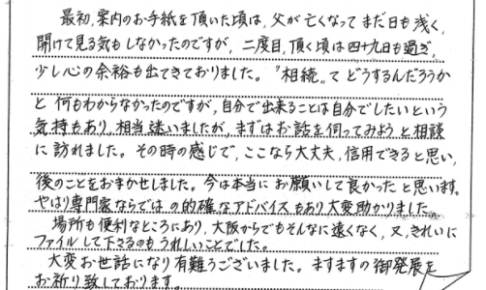 最初、案内のお手紙を頂いた頃は、父が亡くなってまだ日も浅く、
開けて見る気もしなかったのですが、二度目、頂く頃は四十九日も過ぎ、
少し心の余裕も出てきておりました。"相続"ってどうするんだろうか
と何もわからなかったのですが、自分で出来ることは自分でしたいという
気持もあり、相当迷いましたが、まずはお話を伺ってみようと相談
に訪れました。その時の感じで、ここなら大丈夫、信用できると思い、
後のことをおまかせしました。今は本当にお願いして良かったと思います。
やはり専門家ならではの的確なアドバイスもあり大変助かりました。
場所も便利なところにあり、大阪からでもそんなに遠くなく、又、きれいに
ファイルして下さるのもうれしいことでした。
大変お世話になり有難うございました。ますますの御発展を
お祈り致しております。